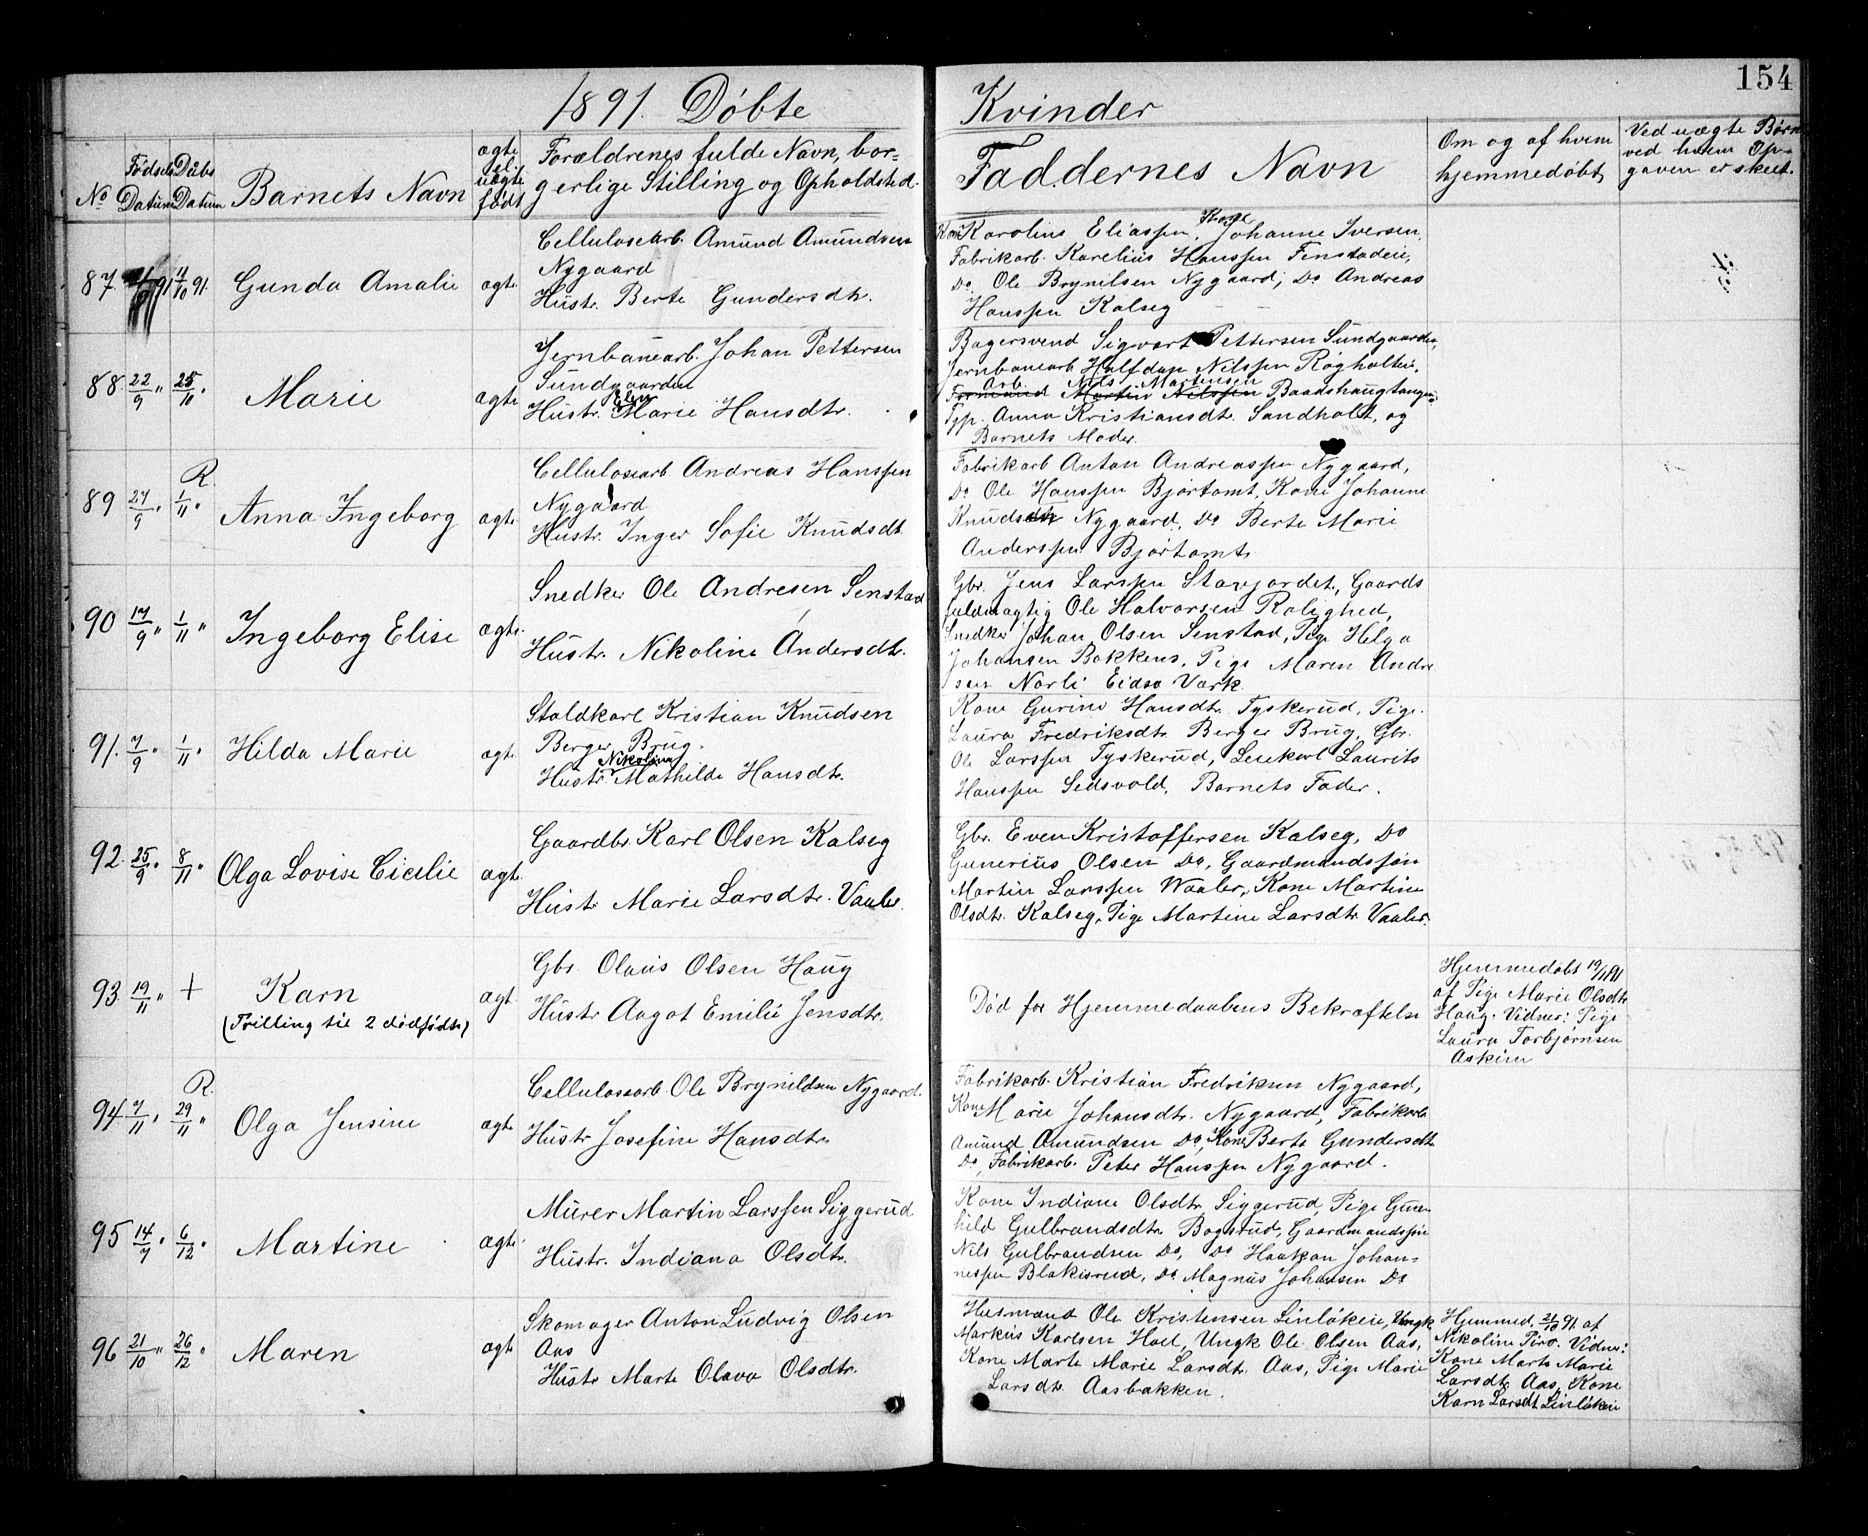 154
1891. Døbte Kvinder
No
Fødsels Datum
Daabs Datum
Barnets Navn
ægte el. uægte født
Forældrenes fulde Navn, bor=
gerlige Stilling og Opholdsted.
Faddernes Navn
Om og af hvem
hjemmedøbt
Ved uægte Børn
ved hvem Op-
gaven er skeet.
87 91 11/10 91. Gunda Amalie ægte
Cellulosearb. Amund Amundsen
Nygaard
Hustr. Berte Gundersdtr.
Kone Karoline Eliassen, Johanne Iversen,
Fabrikarb. Karelius Hanssen Finstadeie,
Do. Ole Brynilsen Nygaard, Do Andreas
Hanssen Kalseg
88. 22/9 " 25/10 " Marie ægte
Jernbanearb. Johan Pettersen
Sundgaarden
Elen
Hustr. Marie Hansdtr.
Bagersvend Sigvart Pettersen Sundgaarden,
Jernbanearb. Halfdan Nilssen Røgholtei,
Arb. Nils Martinsen
Formand Martin Nilssen Baadshaugtangen
Tjp. Anna Kristiansdtr. Sandholt, og
Barnets Moder.
R.
89 27/9 " 1/11 " Anna Ingeborg ægte
Cellulosearb Andreas Hanssen
Nygaard
Hustr. Inger Sofie Knudsdt.
Fabrikarb Anton Andreassen Nygaard,
Do Ole Hanssen Bjørtomt, Kone Johanne
Knudsdtr Nygaard, Do Berte Marie
Anderssen Bjørtomt
90 17/9 " 1/11 " Ingeborg Elise ægte
Snedker Ole Andresen Senstad
Hustr. Nikoline Andersdtr.
Gbr. Jens Larssen Storjordet, Gaards
fuldmægtig Ole Halvorsen Rolighed,
Snedker Johan Olsen Senstad, Pige Helga
Johansen Bakkens, Pige Maren Andre
sen Norli Eidsø Værk
91. 7/9 " 1/11 " Hilda Marie ægte
Staldkarl Kristian Knudsen
Berger Brug.
Nikoline
Hustr. Mathilde Hansdtr.
Kone Gurine Hansdtr. Tyskerud, Pige
Laura Fredriksdtr. Berger Brug, Gbr.
Ole Larssen Tyskerud, Leiekarl Laurits
Hanssen Sedsvold, Barnets Fader.
92. 25/9 " 8/11 " Olga Lovise Cicilie ægte
Gaardbr. Karl Olsen Kalseg
Hustr Marie Larsdtr. Vaaler.
Gbr. Even Kristoffersen Kalseg, Do
Gunerius Olsen Do, Gaardmandssøn
Martin Larssen Waaler, Kone Martine
Olsdtr. Kalseg, Pige Martine Larsdtr Vaaler.
93 19/11 " + Karn ægt
(Trilling til 2 dødfødte)
Gbr. Olaus Olsen Haug
Hustr Aagot Emilie Jensdtr.
Død før Hjemmedaabens Bekræftelse
Hjemmedøbt 19/11 91
af Pige Marie Olsdtr
Haug. Vidner: Pige
Laura Torbjørnsen
Askim
R.
94 7/11 " 29/11 " Olga Jensine ægte
Cellulosearb Ole Brynildsen Nygaard.
Hustr Josefine Hansdtr
Fabrikarb. Kristian Fredriksen Nygaard,
Kone Marie Johansdtr. Nygaard, Fabrikarb
Amund Amundsen Do, Kone Berte Gundersdtr
Do, Fabrikarb. Peter Hanssen Nygaard.
95 14/7 " 6/12 " Martine ægte
Murer Martin Larssen Siggerud
Hustr. Indiana Olsdtr.
Kone Indiane Olsdtr. Siggerud, Pige Gun
hild Gulbrandsdtr. Bogstud, Gaardmandssøn
Nils Gulbrandsen Do, Do Haakon Johan=
nessen Blakisrud, Do Magnus Johansen Do
96 21/10 " 26/12 " Maren ægte
Skomager Anton Ludvig Olsen
Aas
Hustr Marte Olava Olsdtr.
Husmand Ole Kristensen Linløkeie, Ungk
Markus Karlsen Hoel, Ungk Ole Olsen Aas,
Kone Marte Marie Larsdtr. Aas, Pige Marie
Larsdtr. Aasbakken.
Hjemmed. 21/10 91 af
Nikoline Piro. Vidner:
Kone Marte Marie
Larsdtr Aas, Kone
Karn Larsdt Linløkeie